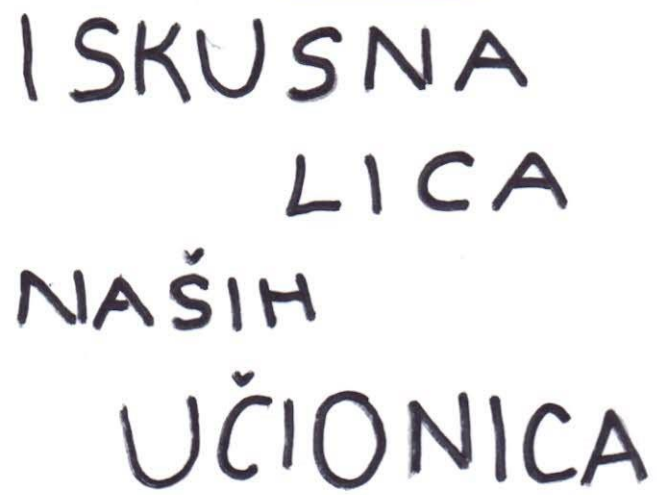 ISKUSNA
LICA
NAŠIH
UČIONICA